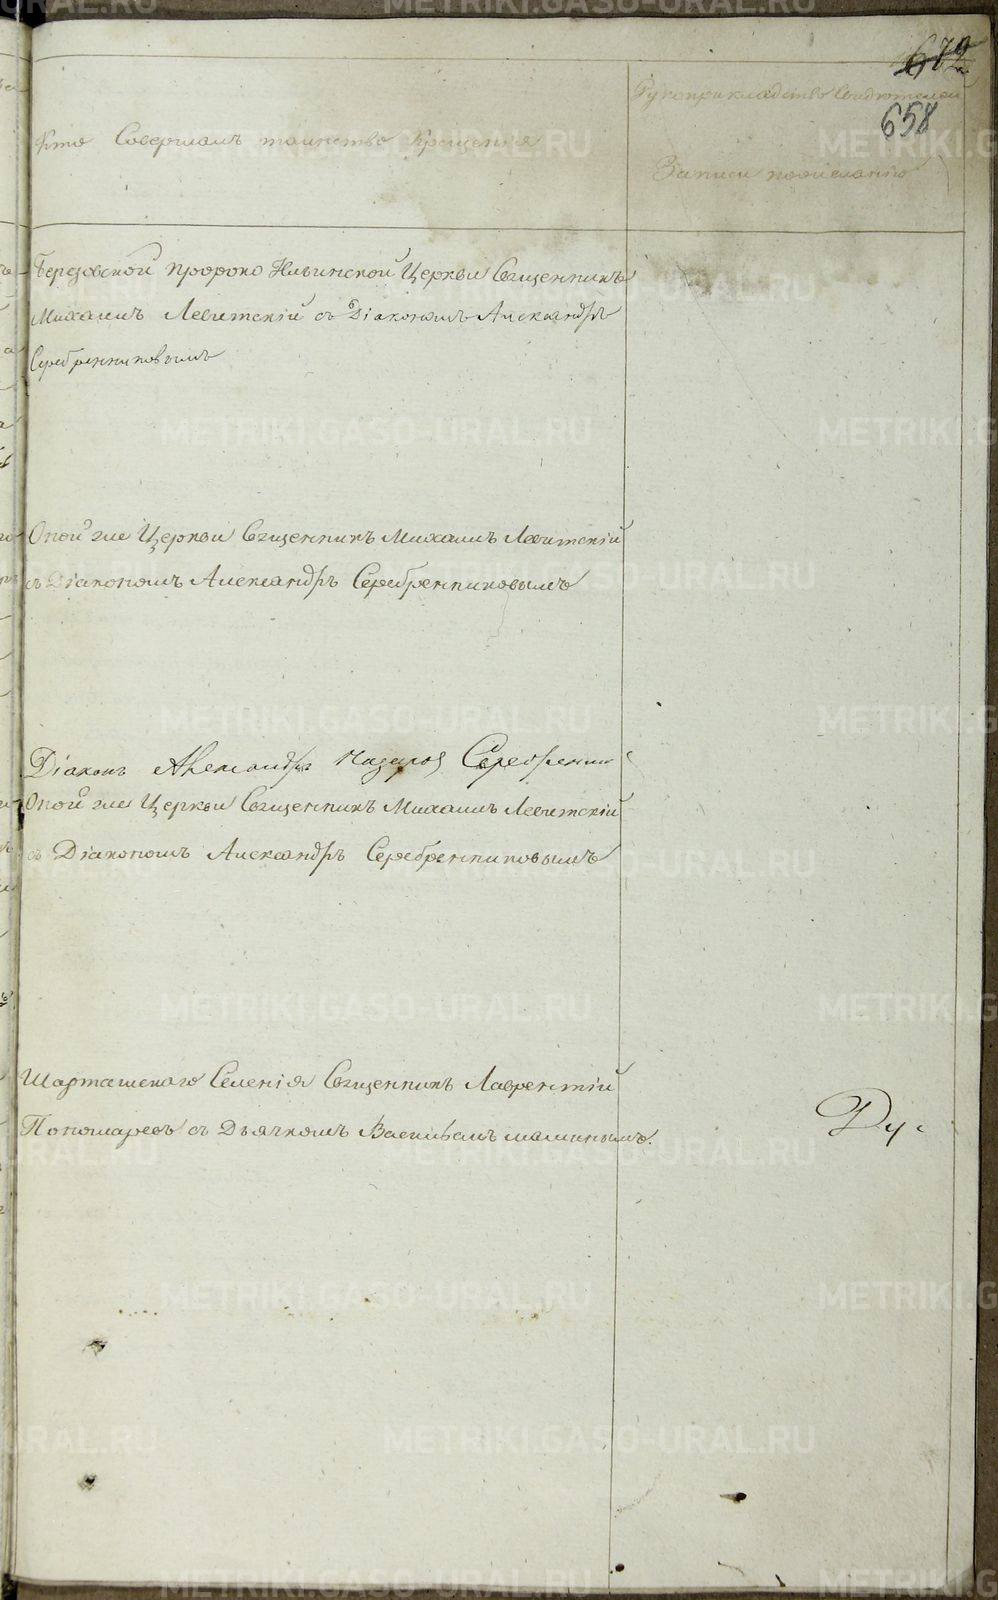 672
658
Кто Совершалъ таинство Крещенія
Рукоприкладство Свидѣтелей
Записи по желанію
Березовской Пророко Ильинской Церкви Священникъ
Михаилъ Левитскій съ Діакономъ Александръ
Серебренниковымъ
Оной же Церкви Священникъ Михаилъ Левитскій
съ Діакономъ Александръ Серебренниковымъ
Діаконъ Александръ Назаров Серебренник
Оной же Церкви Священникъ Михаилъ Левитскій
съ Діакономъ Александръ Серебренниковымъ
Шарташскаго Селенія Священникъ Лаврентій
Пономаревъ съ Дьячкомъ Васильемъ малинымъ.
Ду
METRIKI.GASO-URAL.RU